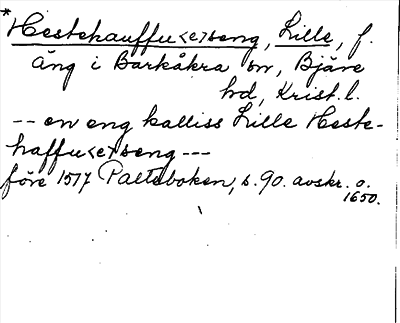 * Hestehauffu<e>seng, Lille, f.
äng i Barkåkra sn, Bjäre
hd, Krist. l.
-- en eng kalliss Lille Heste-
haffu<e>seng ---
före 1517 Palteboken, s. 90. avskr. o.
1650.